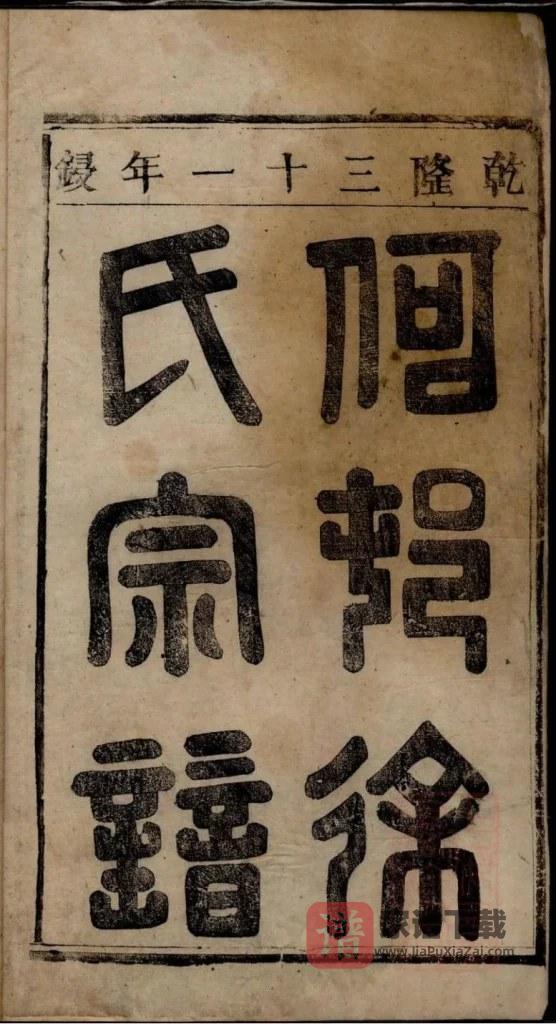 乾隆三十一年鋟
何邨徐
氏宗譜
譜
家谱下载
www.jiaPuXiaZai.com